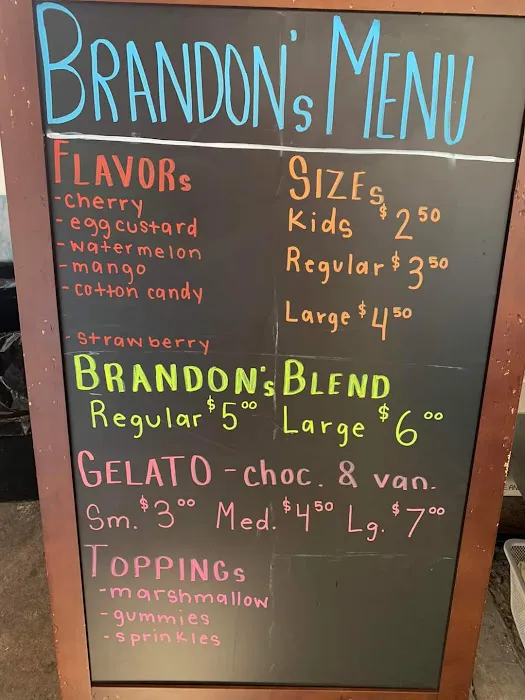 BRANDON'S MENU
FLAVORS
-cherry
-egg custard
-watermelon
-mango
-cotton candy
-strawberry
SIZES
Kids $2.50
Regular $3.50
Large $4.50
BRANDON'S BLEND
Regular $5.00 Large $6.00
GELATO - choc. & van.
Sm. $3.00 Med. $4.50 Lg. $7.00
TOPPINGS
-marshmallow
-gummies
-sprinkles